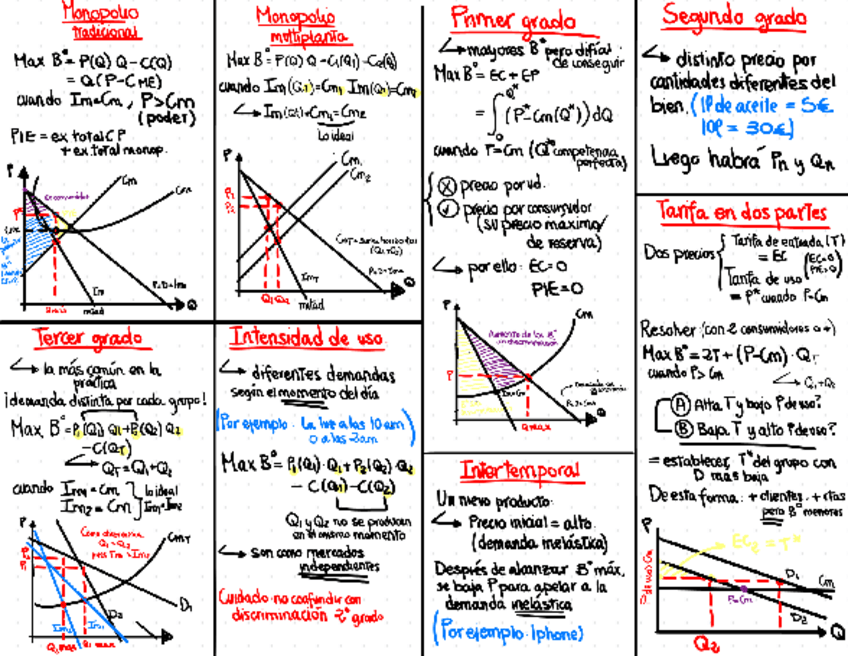 Monopolio
tradicional
Max Bº = P(Q) Q - C(Q)
= Q(P-CME)
cuando Im=Cm, P>Cm
(poder)
PIE = ex total CP
+ ex total monop.
P
Cm
Im
Q
Monopolio
multiplanta
Max Bº = P(Q) Q - C1(Q1) - C2(Q2)
cuando Im(QT)=Cm1 Im(QT)=Cm2
Im(QT)=Cm1=Cm2
lo ideal
P
Cm1
Cm2
P1
P2
ImT
Q1 Q2
Q
Primer grado
mayores Bº pero difícil
de conseguir
Max Bº = EC + EP
= ∫0Q* (P-Cm(Q*)) dQ
cuando P=Cm (Q* competencia
perfecta)
X precio por ud.
✓ precio por consumidor
(su precio máximo/
de reserva)
por ello: EC=0
PIE=0
P
Cm
P
Qmax
Q
Segundo grado
distinto precio por
cantidades diferentes del
bien. (1P de aceite = 5€
10P = 30€)
Luego habrá Pn y Qn
Tarifa en dos partes
Dos precios
Tarifa de entrada (T)
= EC (EC=0
PIE=0)
Tarifa de uso
= P* cuando P=Cm
Resolver (con 2 consumidores o +)
Max Bº = 2T + (P-Cm) · QT
cuando P>Cm
Q1+Q2
A Alta T y bajo P de uso?
B Baja T y alto P de uso?
= establecer T* del grupo con
D más baja
De esta forma: + clientes, + ctas
pero Bº menores
P
EC2 = T*
D1
Cm
P=Cm
D2
Q2
Q
Tercer grado
la más común en la
práctica
¡demanda distinta por cada grupo!
Max Bº = P1(Q1) Q1 + P2(Q2) Q2
- C(QT)
QT = Q1+Q2
cuando Im1 = Cm
Im2 = Cm
lo ideal
Im1=Im2
P
CmT
D1
D2
Im2
Im1
Q2 max
Q1 max
Q
Intensidad de uso
diferentes demandas
según el momento del día
(Por ejemplo: La luz a las 10 am
o a las 3am)
Max Bº = P1(Q1) · Q1 + P2(Q2) · Q2
- C(Q1) - C(Q2)
Q1 y Q2 no se producen
en el mismo momento
son como mercados
independientes
Cuidado no confundir con
discriminación 2º grado
Intertemporal
Un nuevo producto:
Precio inicial = alto
(demanda inelástica)
Después de alcanzar Bº máx,
se baja P para apelar a la
demanda inelástica
(Por ejemplo: Iphone)